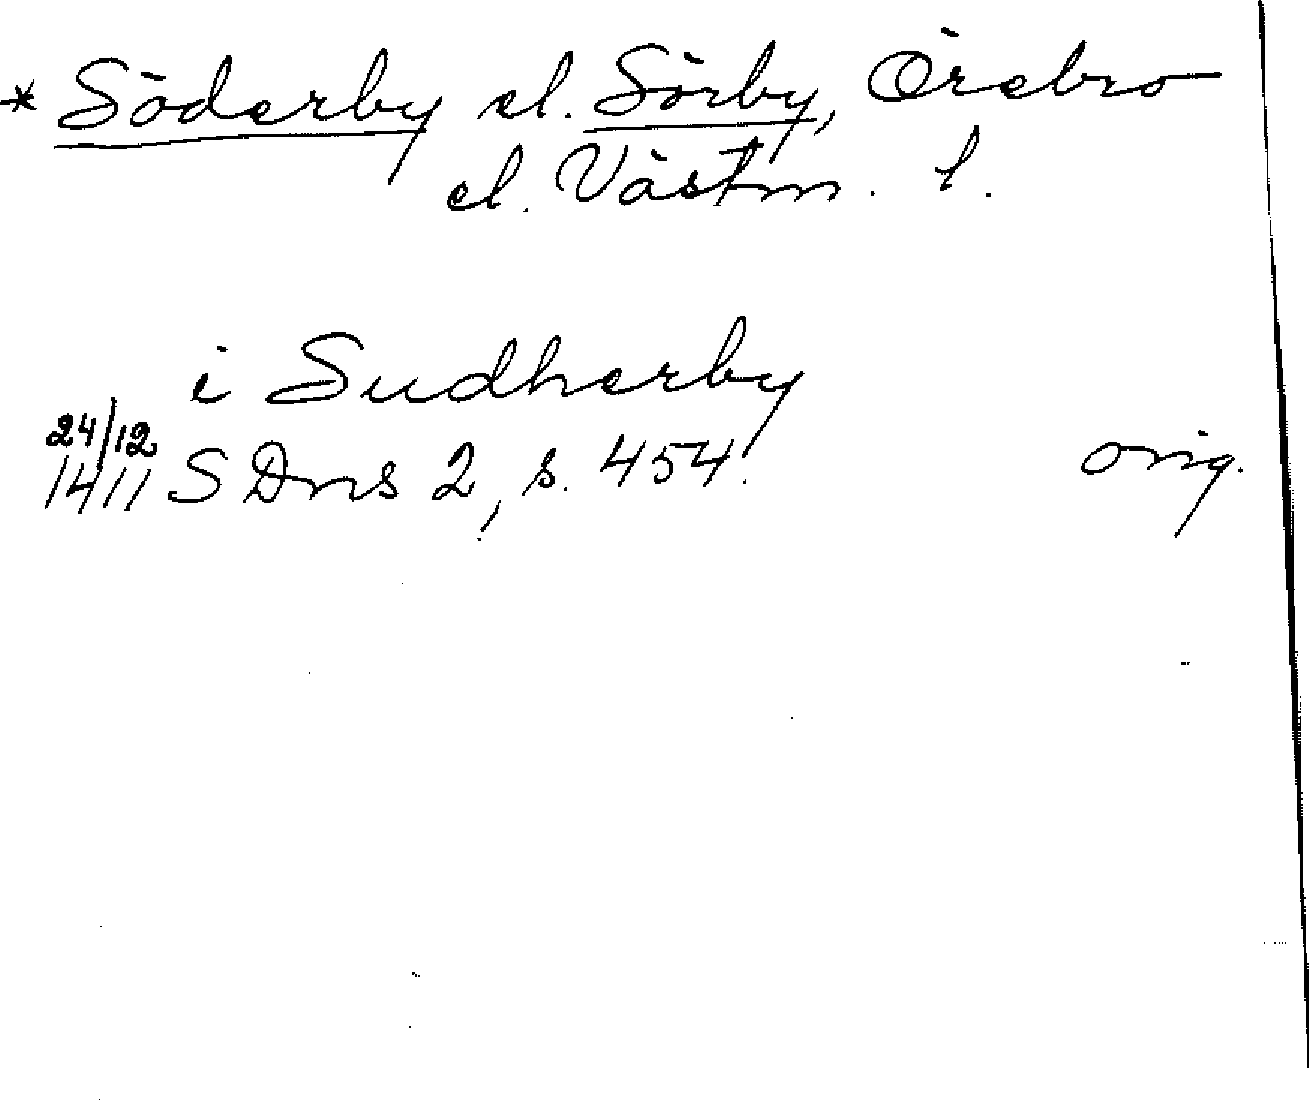 * Söderby el. Sörby, Örebro
el. Västm. l.
i Sudherby
24/12
1411 SDns 2, s. 454.
orig.